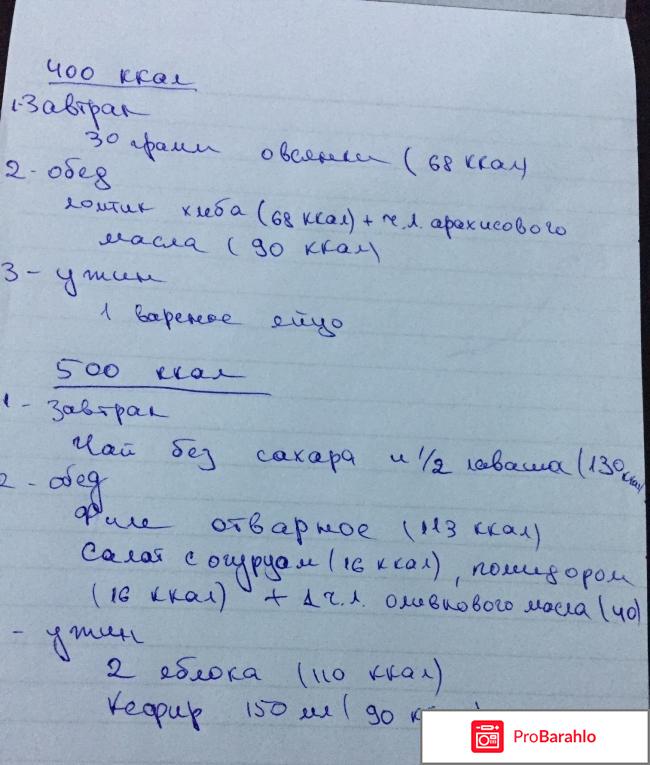 400 ккал
1-Завтрак
30 грамм овсянки (68 ккал)
2- обед
ломтик хлеба (68 ккал) + ч.л. арахисового
масла (90 ккал)
3- ужин
1 вареное яйцо
500 ккал
1- Завтрак
Чай без сахара и 1/2 лаваша (130 ккал
2- обед
Филе отварное (113 ккал)
Салат с огурцам (16 ккал), помидором
(16 ккал) + 1 ч.л. оливкового масла (40)
- ужин
2 яблока (110 ккал)
Кефир 150 мл (90
ProBarahlo